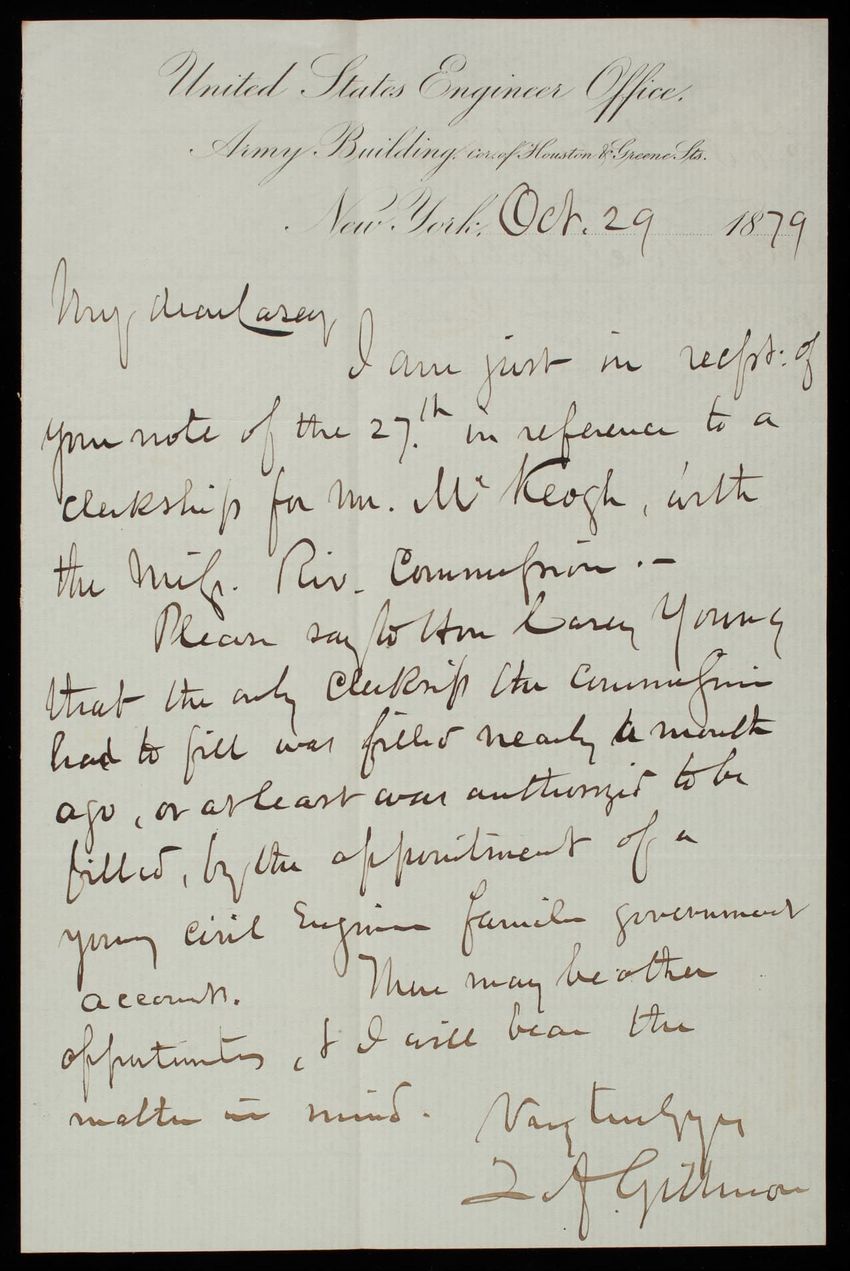 United States Engineer Office.
Army Building, cor. of Houston & Greene Sts.
New York, Oct. 29 1879
My dear Casey
I am just in recpt: of
your note of the 27.th in reference to a
clerkship for Mr. Mc Keogh, with
the Miss. Riv. Commission. —
Please say to Hon Casey Young
that the only clerksip the commission
had to fill was filled nearly a month
ago, or at least was authorized to be
filled, by the appointment of a
young civil Engineer familiar government
accounts. There may be other
opportunities, & I will bear the
matter in mind. Very truly yrs
Q A Gillmore